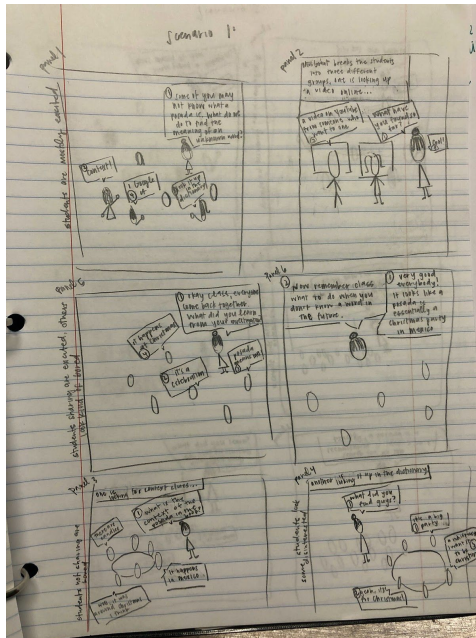 Scenario 1:
panel 1
students are mostly excited
① some of you may
not know what a
posada is, what do we
do to find the
meaning of an
unknown word?
context!
google
it
look it up
in a
dictionary!
panel 2
breaks the students
into three different
groups, one is looking up
a video online...
a video on youtube
from someone who
went to one
what have
you found so
far?
cool!
panel 5
students sharing are excited, others
look kind of bored
① okay class, everyone
come back together
what did you learn
from your
it happens
at christmas
it's a
celebration
posada
panel 6
② now remember class
what to do when you
don't know a word in
the future.
① very good,
everybody!
it looks like a
posada is
essentially a
christmas party
in mexico
panel 3
students not sharing are
bored
one is looking for context clues...
① what is the
context of the
posada in the
it happens
in mexico
christmas
panel 4
students look
interested
another is looking it up in the dictionary
① what did you
find guys?
it's a big
party
for christmas!